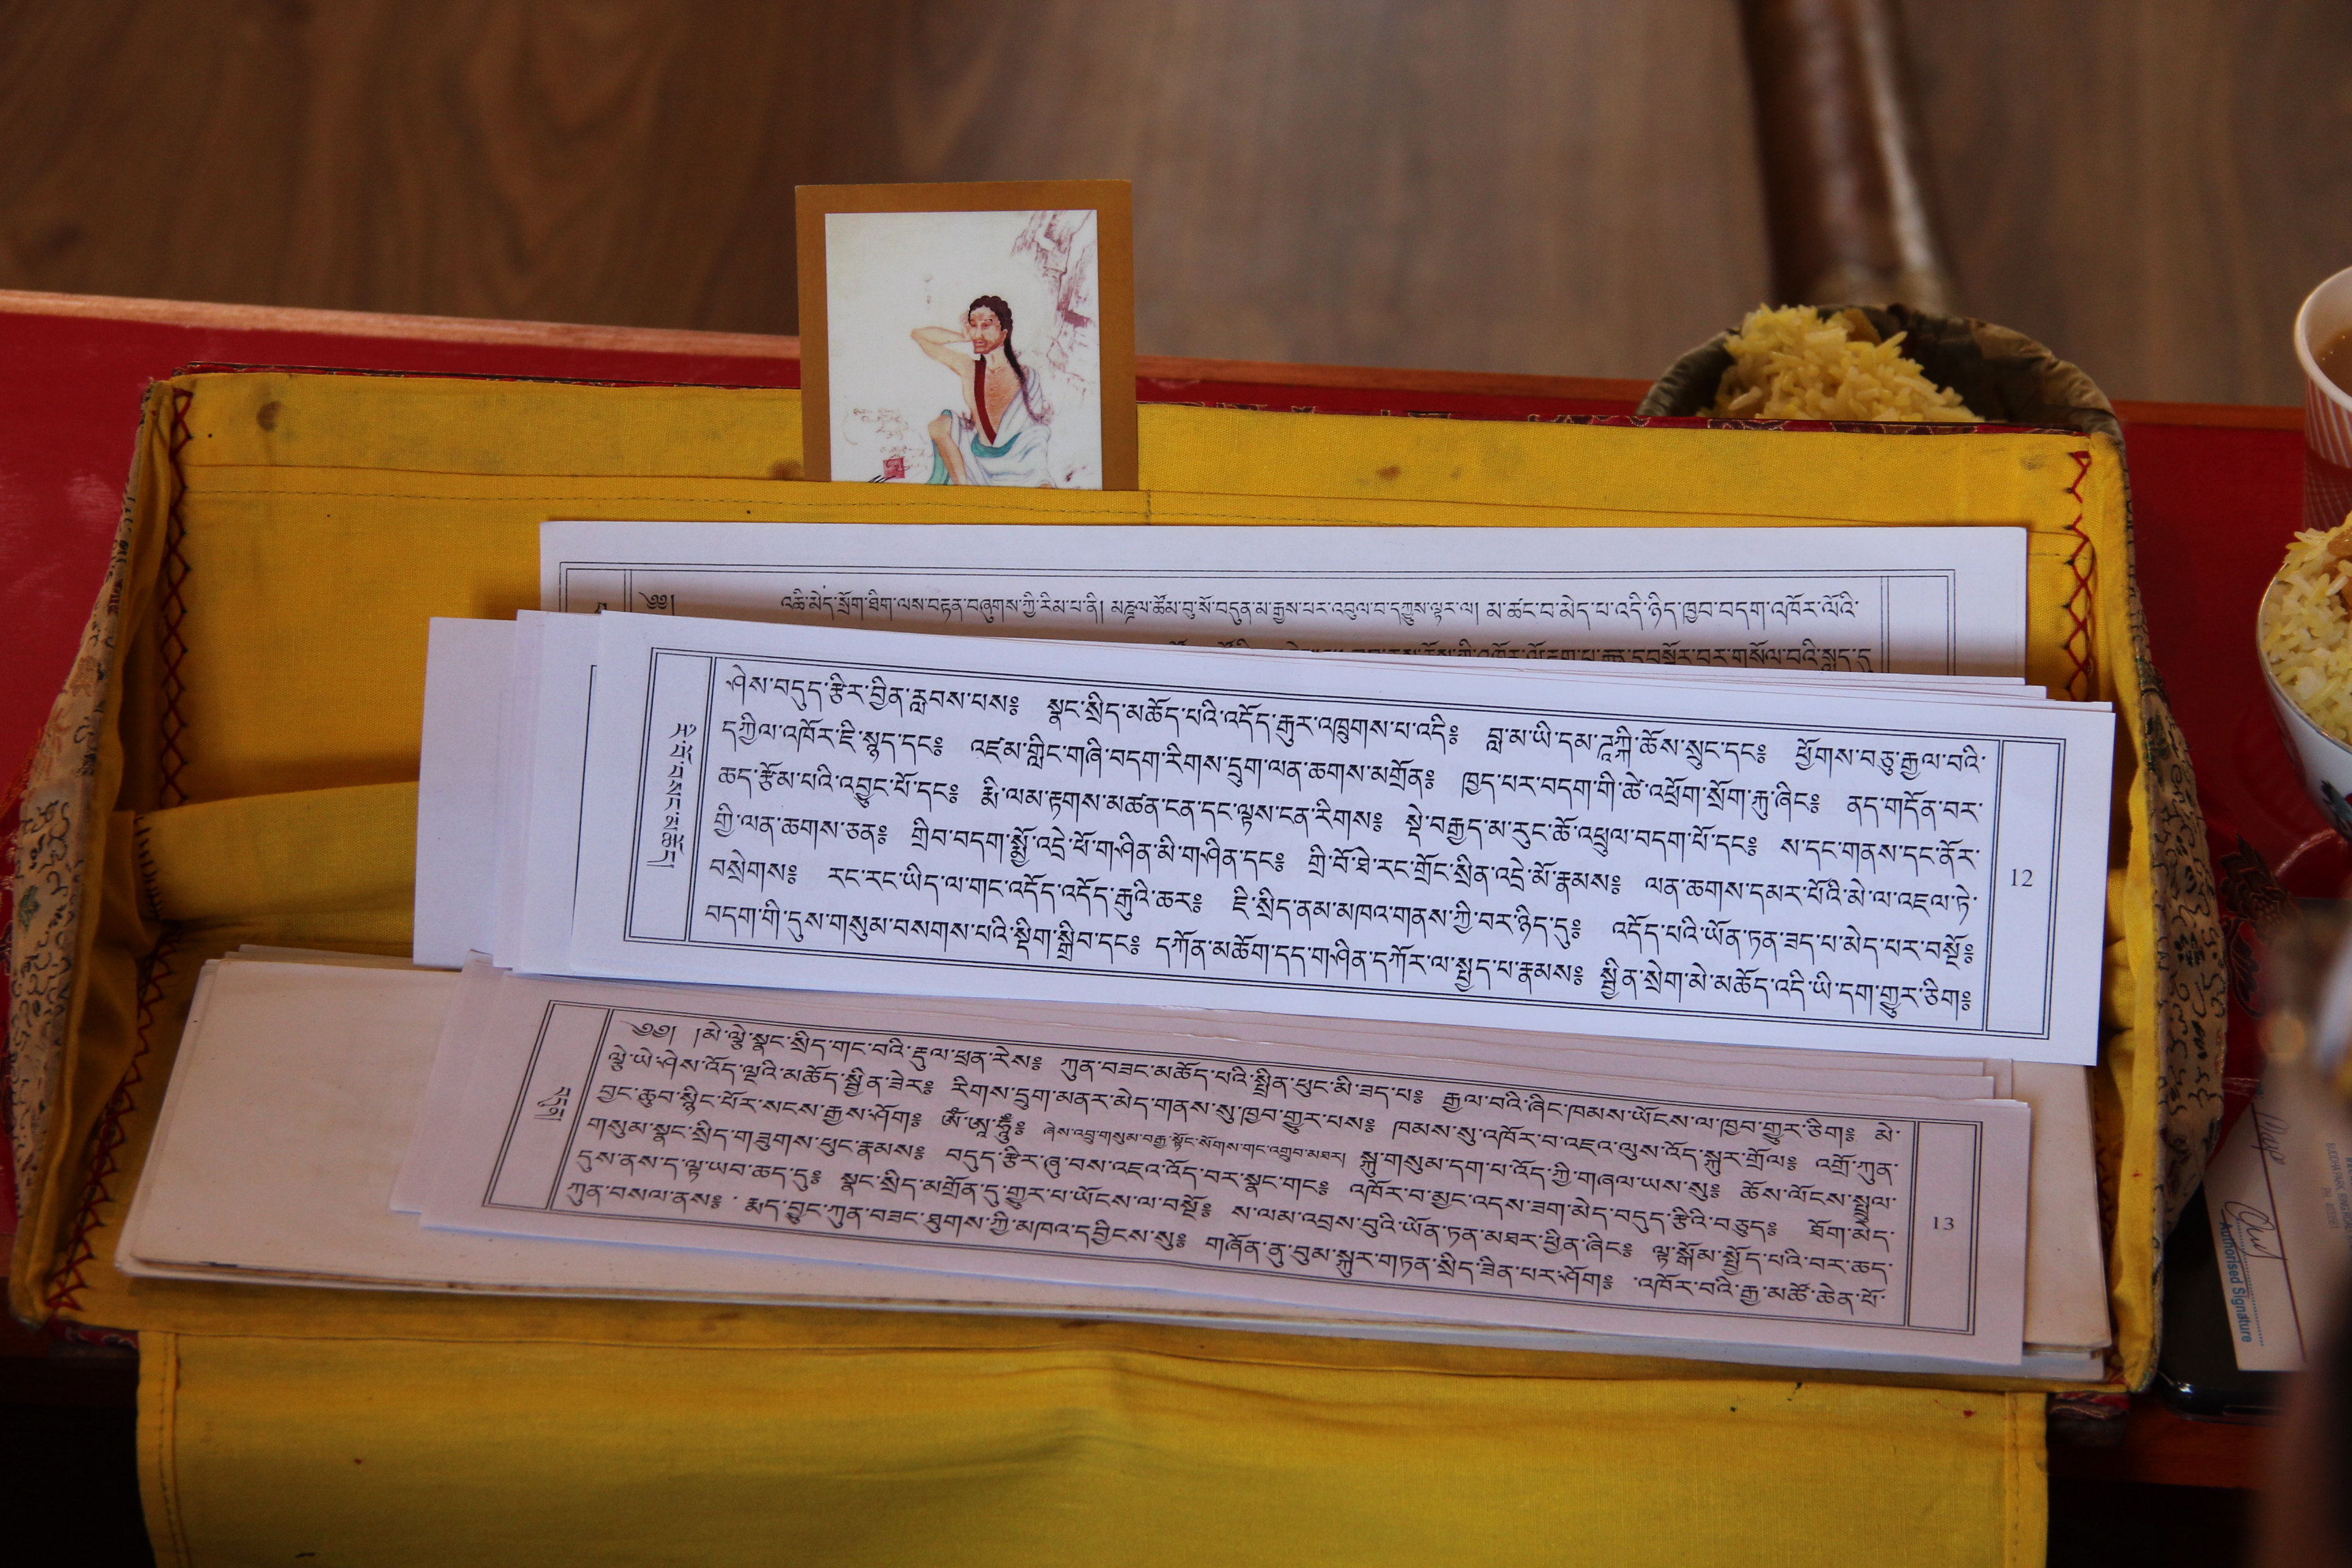 ༄༅། འཆི་མེད་སྲོག་ཐིག་ལས་བརྟན་བཞུགས་ཀྱི་རིམ་པ་ནི། མཎྜལ་ཚོམ་བུ་སོ་བདུན་མ་རྒྱས་པར་འབུལ་བ་དཀྱུས་ལྟར་ལ། མ་ཚང་བ་མེད་པ་འདི་ཉིད་ཁྱབ་བདག་འཁོར་ལོའི་
རི་བོ་བསང་མཆོད།
ཤེས་བདུད་རྩིར་བྱིན་རླབས་པས༔ སྣང་སྲིད་མཆོད་པའི་འདོད་རྒུར་འཁྲུགས་པ་འདི༔ བླ་མ་ཡི་དམ་ཌཱཀྐི་ཆོས་སྲུང་དང༔ ཕྱོགས་བཅུ་རྒྱལ་བའི་
དཀྱིལ་འཁོར་ཇི་སྙད་དང༔ འཛམ་གླིང་གཞི་བདག་རིགས་དྲུག་ལན་ཆགས་མགྲོན༔ ཁྱད་པར་བདག་གི་ཚེ་འཕྲོག་སྲོག་རྐུ་ཞིང༔ ནད་གདོན་བར་
ཆད་རྩོམ་པའི་འབྱུང་པོ་དང༔ རྨི་ལམ་རྟགས་མཚན་ངན་དང་ལྟས་ངན་རིགས༔ སྡེ་བརྒྱད་མ་རུང་ཆོ་འཕྲུལ་བདག་པོ་དང༔ ས་དང་གནས་དང་ནོར་
གྱི་ལན་ཆགས་ཅན༔ གྲིབ་བདག་སྨྱོ་འདྲེ་ཕོ་གཤིན་མི་གཤིན་དང༔ གྲི་བོ་ཐེ་རང་གྲོང་སྲིན་འདྲེ་མོ་རྣམས༔ ལན་ཆགས་དམར་པོའི་མེ་ལ་འཇལ་ཏེ་
བསྲེགས༔ རང་རང་ཡིད་ལ་གང་འདོད་འདོད་རྒུའི་ཆར༔ ཇི་སྲིད་ནམ་མཁའ་གནས་ཀྱི་བར་ཉིད་དུ༔ འདོད་པའི་ཡོན་ཏན་ཟད་པ་མེད་པར་བསྔོ༔
བདག་གི་དུས་གསུམ་བསགས་པའི་སྡིག་སྒྲིབ་དང༔ དཀོན་མཆོག་དད་གཤིན་དཀོར་ལ་སྤྱད་པ་རྣམས༔ སྦྱིན་སྲེག་མེ་མཆོད་འདི་ཡི་དག་གྱུར་ཅིག༔
12
༄༅། །མེ་ལྕེ་སྣང་སྲིད་གང་བའི་རྡུལ་ཕྲན་རེས༔ ཀུན་བཟང་མཆོད་པའི་སྤྲིན་ཕུང་མི་ཟད་པ༔ རྒྱལ་བའི་ཞིང་ཁམས་ཡོངས་ལ་ཁྱབ་གྱུར་ཅིག༔ མེ་
ལྕེ་ཡེ་ཤེས་འོད་ལྔའི་མཆོད་སྦྱིན་ཟེར༔ རིགས་དྲུག་མནར་མེད་གནས་སུ་ཁྱབ་གྱུར་པས༔ ཁམས་སུ་འཁོར་བ་འཇའ་ལུས་འོད་སྐུར་གྲོལ༔ འགྲོ་ཀུན་
བྱང་ཆུབ་སྙིང་པོར་སངས་རྒྱས་ཤོག༔ ཨོཾ་ཨཱཿཧཱུྃ༔ ཞེས་འབྲུ་གསུམ་བརྒྱ་སྟོང་སོགས་གང་འགྲུབ་མཐར། སྐུ་གསུམ་དག་པ་འོད་ཀྱི་གཞལ་ཡས་སུ༔ ཆོས་ལོངས་སྤྲུལ་
གསུམ་སྣང་སྲིད་གཟུགས་ཕུང་རྣམས༔ བདུད་རྩིར་ཞུ་བས་འཇའ་འོད་བར་སྣང་གང༔ འཁོར་བ་མྱང་འདས་ཟག་མེད་བདུད་རྩིའི་བཅུད༔ ཐོག་མེད་
དུས་ནས་ད་ལྟ་ཡབ་ཆད་དུ༔ སྣང་སྲིད་མགྲོན་དུ་གྱུར་པ་ཡོངས་ལ་བསྔོ༔ ས་ལམ་འབྲས་བུའི་ཡོན་ཏན་མཐར་ཕྱིན་ཞིང༔ ལྟ་སྒོམ་སྤྱོད་པའི་བར་ཆད་
ཀུན་བསལ་ནས༔ རྨད་བྱུང་ཀུན་བཟང་ཐུགས་ཀྱི་མཁའ་དབྱིངས་སུ༔ གཞོན་ནུ་བུམ་སྐུར་གཏན་སྲིད་ཟིན་པར་ཤོག༔ འཁོར་བའི་རྒྱ་མཚོ་ཆེན་པོ་
13
Authorised Signature